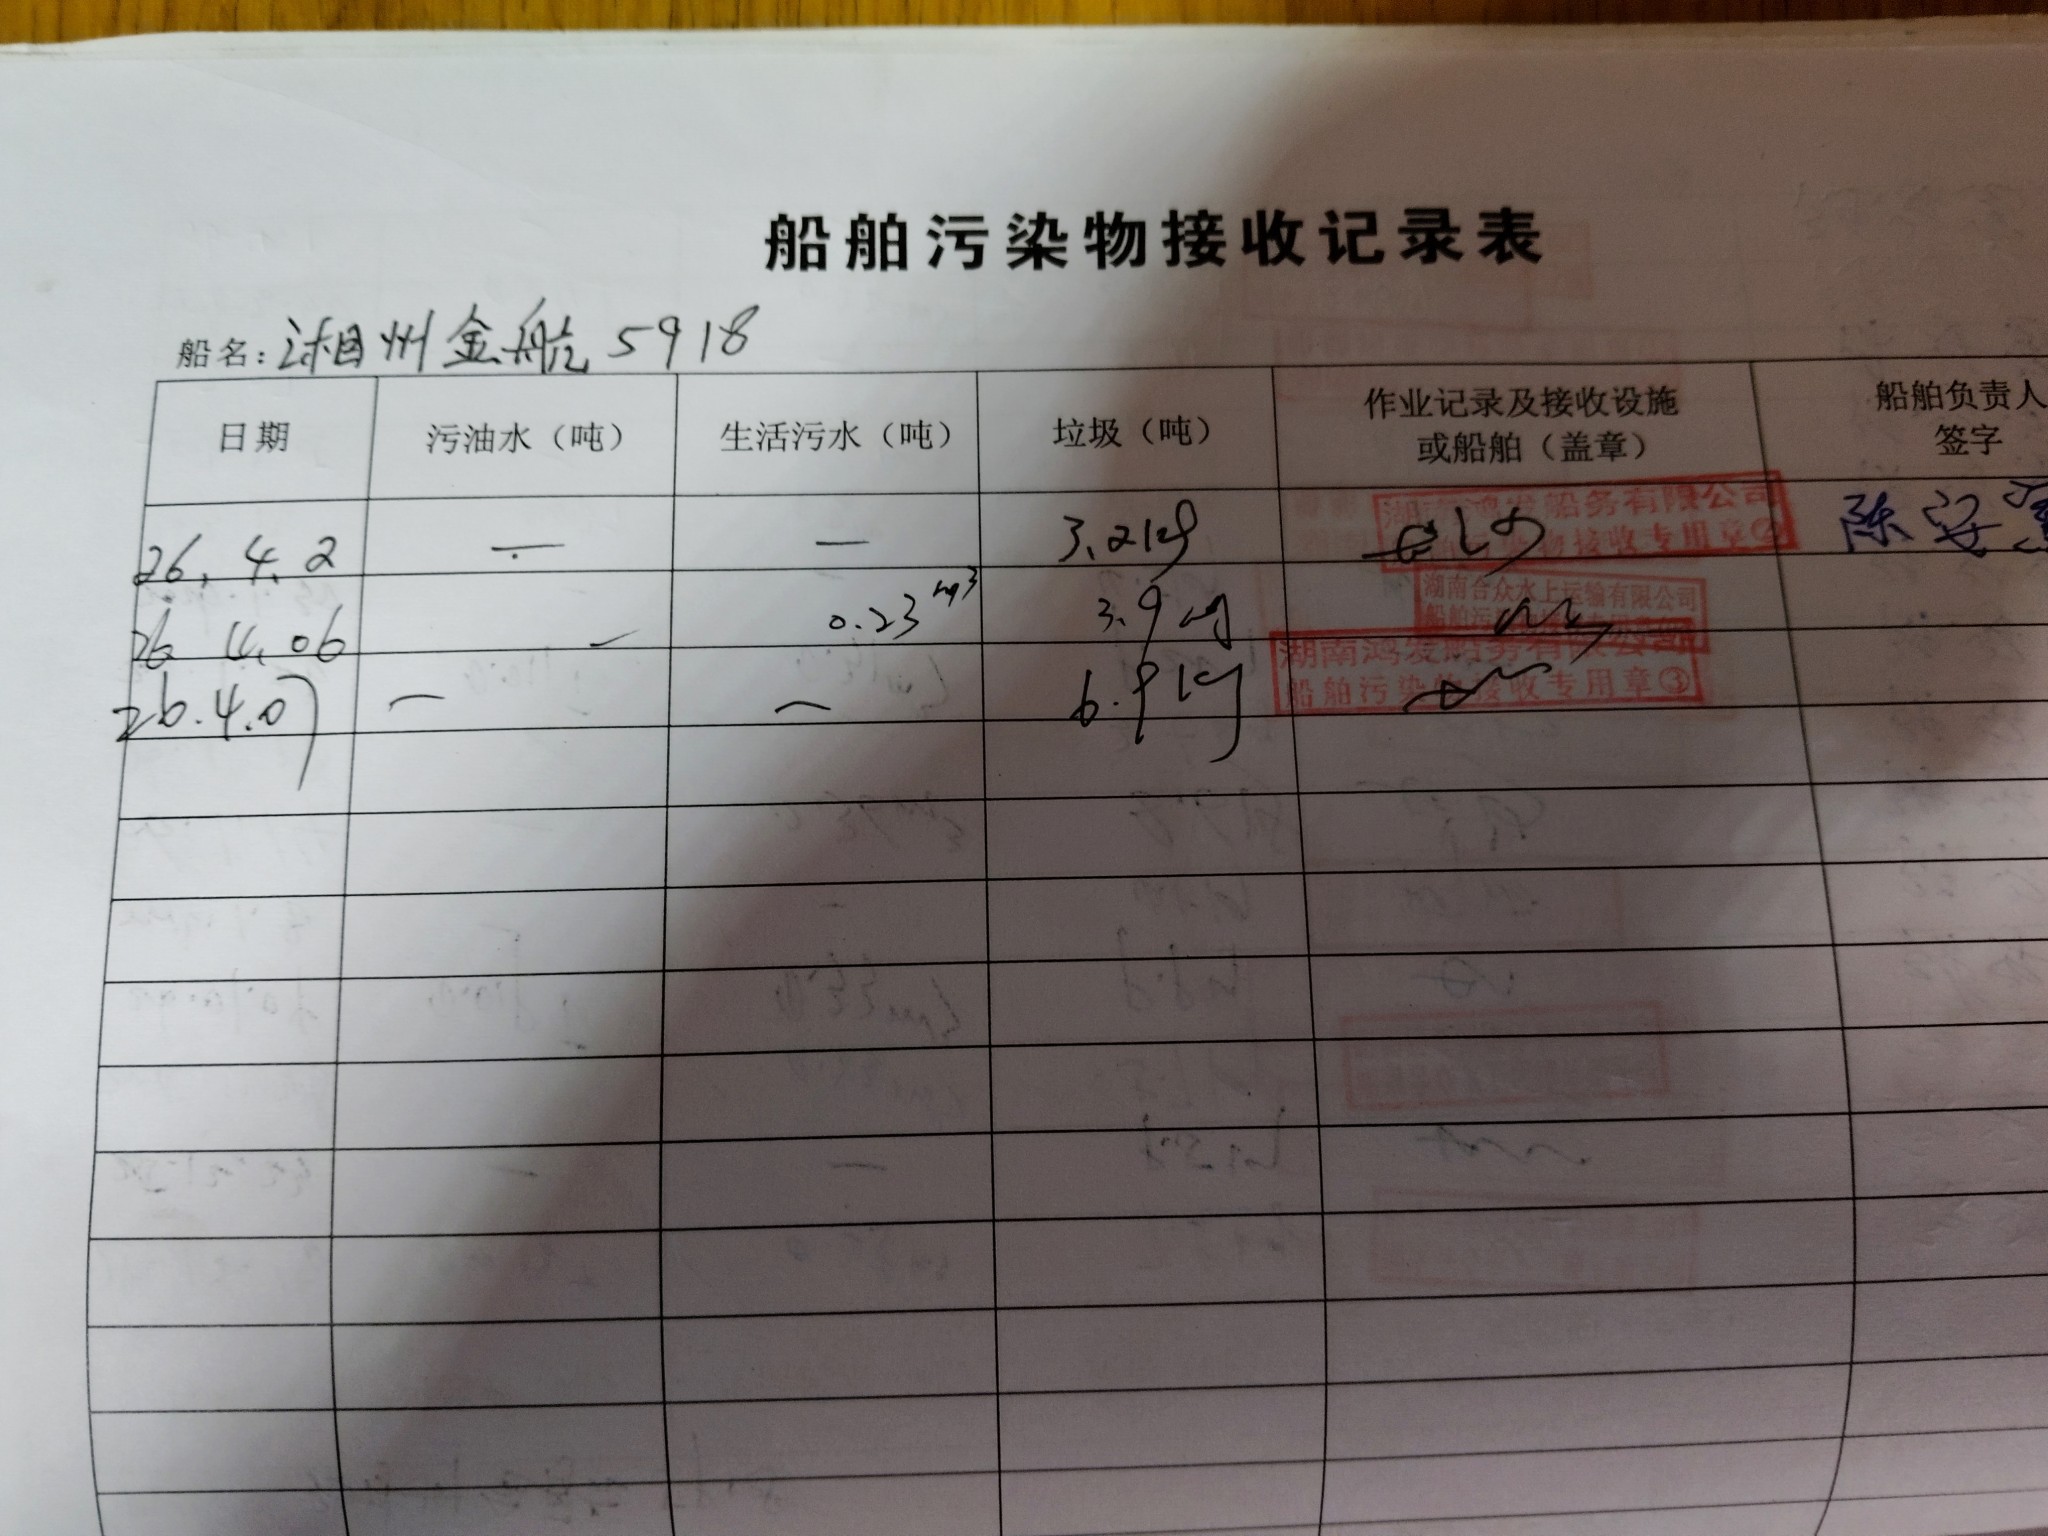 船舶污染物接收记录表
船名: 湘州金航5918
日期 污油水（吨） 生活污水（吨） 垃圾（吨） 作业记录及接收设施或船舶（盖章） 船舶负责人签字
26.4.2 — — 3.2kg 湖南鸿发船务有限公司 船舶污染物接收专用章② 陈
26.4.06 — 0.23m³ 3.9kg 湖南合众水上运输有限公司
26.4.07 — — 6.9kg 湖南鸿发船务有限公司 船舶污染物接收专用章③